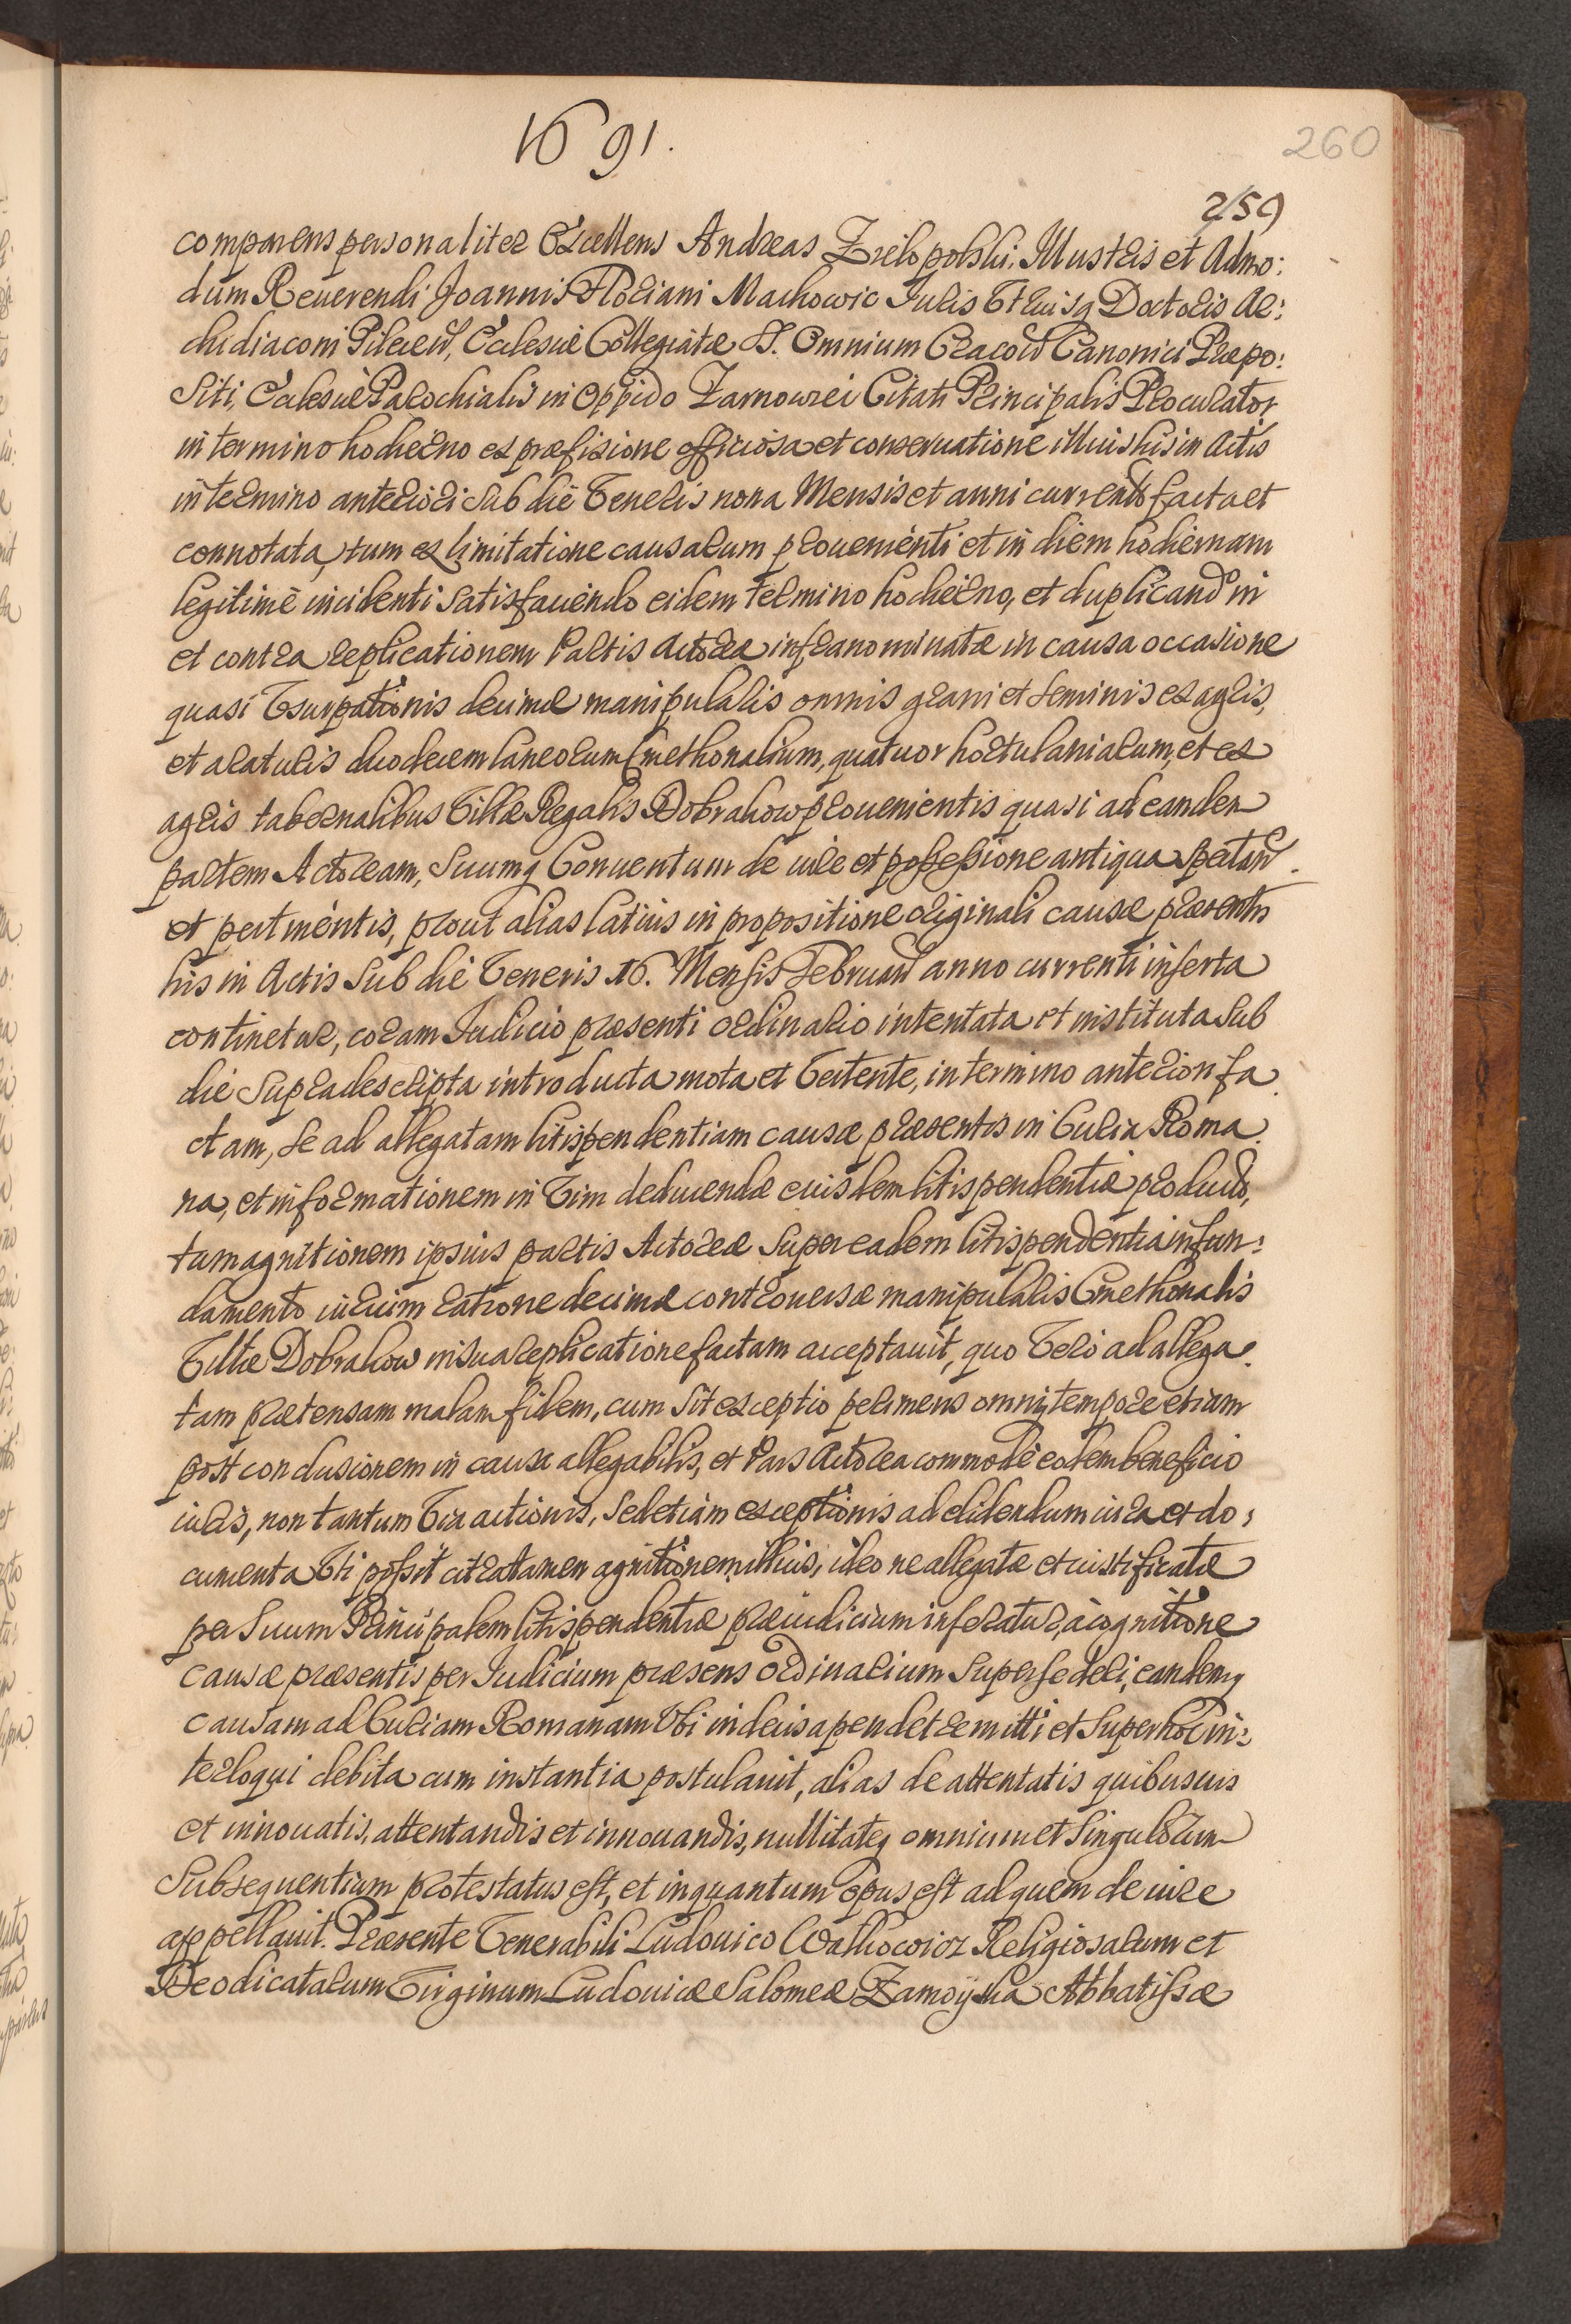 1691.
260
259
comparens personaliter Excellens Andreas Zielopolski, Illustris et Admo:
dum Reuerendi Joannis Floriani Machowic Iuris Vtriusq Doctoris Ar:
chidiaconi Pilecen, Ecclesiæ Collegiatæ SS. Omnium Cracoun Canonici Præpo:
siti, Ecclesiæ Parochialis in Oppido Zarnowiei Citati Principalis Procurator
in termino hodierno ex præfixione officiosa et conseruatione illius his in Actis
in termino anteriori sub die Veneris nona Mensis et anni currentis facta et
connotata, tum ex limitatione causarum prouenienti et in diem hodiernam
legitimè incidenti satisfaciendo eidem termino hodierno, et duplicand in
et contra replicationem Partis Actoreæ infranominatæ in causa occasione
quasi Vsurpationis decimæ manipularis omnis grani et seminis ex agris,
et araturis duodecem laneorum Cmethonalium, quatuor hortulaniarum, et ex
agris tabernalibus Villæ Regalis Dobrakow prouenientis quasi ad eandem
partem Actoream, suumq Conuentum de iure et possessione antiqua spectan
et pertinentis, prout alias latius in propositione originali causæ præsentis
his in Actis sub die Veneris 16. Mensis Februarii anno currenti inserta
continetur, coram Iudicio præsenti ordinario intentata et instituta sub
die supradescripta introducta mota et Vertente, in termino anteriori fa
ctam, se ad allegatam litispendentiam causæ præsentis in Curia Roma
na, et informationem in Vim deducendæ eiusdem litispendentiæ producto,
tum agnitionem ipsius partis Actoreæ super eadem litispendentia in fun:
damento iurium ratione decimæ controuersæ manipularis Cmethonalis
Villæ Dobrakow in sua replicatione factam acceptauit, quo Vero ad allega
tam prætensam malam fidem, cum sit exceptio perimens omni tempore etiam
post conclusionem in causa allegabilis, et Pars Actorea commodè eodem beneficio
iuris, non tantum Via actionis, sed etiam exceptionis ad elidendum iura et do:
cumenta Vti possit citra tamen agnitionem illius, ideo ne allegatæ et iustificatæ
per suum Principalem litispendentiæ præiudicium inferatur, à cognitione
causæ præsentis per Iudicium præsens ordinarium supersederi, eandemq
causam ad Curiam Romanam Vbi indecisa pendet remitti et super hoc in:
terloqui debita cum instantia postulauit, alias de attentatis quibusuis
et innouatis, attentandis et innouandis, nullitateq omnium et singulorum
subsequentium protestatus est, et inquantum opus est ad quem de iure
appellauit. Præsente Venerabili Ludouico Walkowicz Religiosarum et
Deo dicatarum Virginum Ludouicæ Salomeæ Zamoyska Abbatissæ